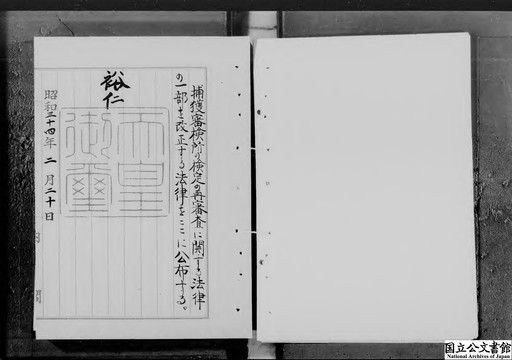 捕獲審検所の検定の再審査に関する法律
の一部を改正する法律をここに公布する。
裕仁
天皇
御璽
昭和三十四年二月二十日
国立公文書館
National Archives of Japan